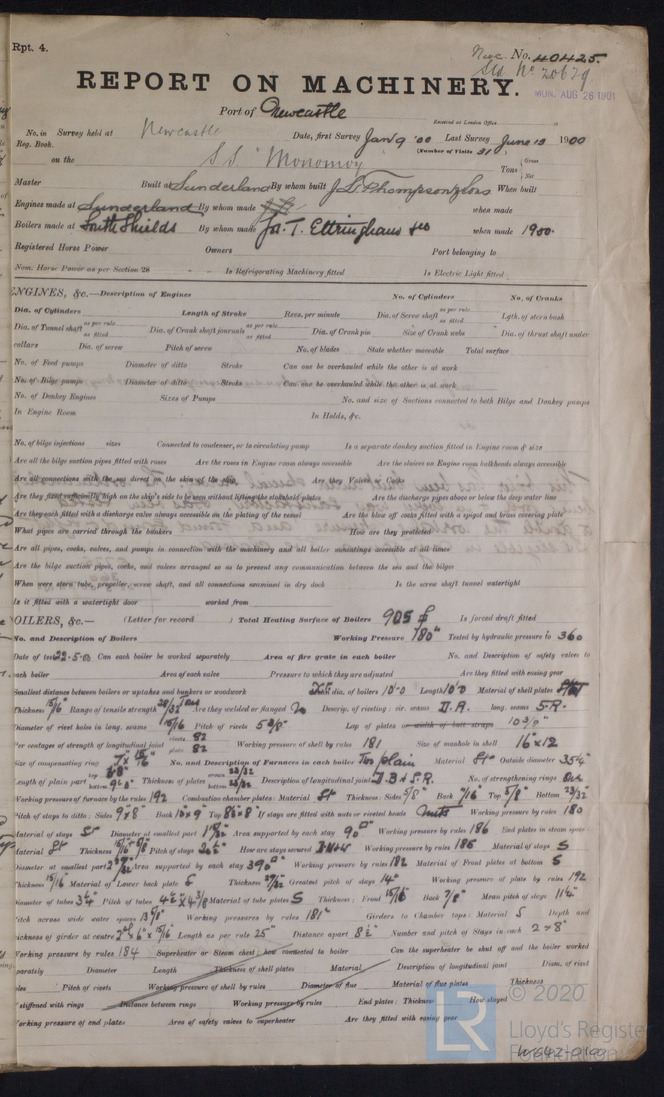 Rpt. 4.
Nwc. No. 40425.
Sld. No 20679
REPORT ON MACHINERY.
MON. AUG 26 1901
Port of Newcastle
Received at London Office
No. in Survey held at Newcastle Date, first Survey Jan 9 '00 Last Survey June 13 1900
Reg. Book. (Number of Visits 31)
on the S.S "Monomoy" Tons Gross Net
Master Built at Sunderland By whom built J. L. Thompson & Sons When built
Engines made at Sunderland By whom made when made
Boilers made at South Shields By whom made Jos. T. Eltringham & Co when made 1900.
Registered Horse Power Owners Port belonging to
Nom. Horse Power as per Section 28 Is Refrigerating Machinery fitted Is Electric Light fitted
ENGINES, &c.—Description of Engines No. of Cylinders No. of Cranks
Dia. of Cylinders Length of Stroke Revs. per minute Dia. of Screw shaft as per rule as fitted Lgth. of stern bush
Dia. of Tunnel shaft as per rule as fitted Dia. of Crank shaft journals as per rule as fitted Dia. of Crank pin Size of Crank webs Dia. of thrust shaft under
collars Dia. of screw Pitch of screw No. of blades State whether moveable Total surface
No. of Feed pumps Diameter of ditto Stroke Can one be overhauled while the other is at work
No. of Bilge pumps Diameter of ditto Stroke Can one be overhauled while the other is at work
No. of Donkey Engines Sizes of Pumps No. and size of Suctions connected to both Bilge and Donkey pumps
In Engine Room In Holds, &c.
No. of bilge injections sizes Connected to condenser, or to circulating pump Is a separate donkey suction fitted in Engine room & size
Are all the bilge suction pipes fitted with roses Are the roses in Engine room always accessible Are the sluices on Engine room bulkheads always accessible
Are all connections with the sea direct on the skin of the ship Are they Valves or Cocks
Are they fixed sufficiently high on the ship's side to be seen without lifting the stokehold plates Are the discharge pipes above or below the deep water line
Are they each fitted with a discharge valve always accessible on the plating of the vessel Are the blow off cocks fitted with a spigot and brass covering plate
What pipes are carried through the bunkers How are they protected
Are all pipes, cocks, valves, and pumps in connection with the machinery and all boiler mountings accessible at all times
Are the bilge suction pipes, cocks, and valves arranged so as to prevent any communication between the sea and the bilges
When were stern tube, propeller, screw shaft, and all connections examined in dry dock Is the screw shaft tunnel watertight
Is it fitted with a watertight door worked from
OILERS, &c.— (Letter for record ) Total Heating Surface of Boilers 905 Is forced draft fitted
No. and Description of Boilers Working Pressure 180 Tested by hydraulic pressure to 360
Date of test 22-5-0 Can each boiler be worked separately Area of fire grate in each boiler No. and Description of safety valves to
each boiler Area of each valve Pressure to which they are adjusted Are they fitted with easing gear
Smallest distance between boilers or uptakes and bunkers or woodwork dia. of boilers 10'0 Length 10'0 Material of shell plates Steel
Thickness 15/16 Range of tensile strength 28/32 Tons Are they welded or flanged No Descrip. of riveting: cir. seams D.R. long. seams S.R.
Diameter of rivet holes in long. seams 15/16 Pitch of rivets 5 3/8" Lap of plates or width of butt straps 10 3/8"
Per centages of strength of longitudinal joint rivets 82 plate 82 Working pressure of shell by rules 181 Size of manhole in shell 16" x 12
Size of compensating ring 7" x 15/16 No. and Description of Furnaces in each boiler Two plain Material St Outside diameter 35 4"
Length of plain part top 6'8" bottom 9'0" Thickness of plates crown 23/32 bottom 23/32 Description of longitudinal joint D.B.S.R. No. of strengthening rings One
Working pressure of furnace by the rules 192 Combustion chamber plates: Material St Thickness: Sides 5/8" Back 11/16 Top 5/8" Bottom 23/32
Pitch of stays to ditto: Sides 9 x 8" Back 10 x 9" Top If stays are fitted with nuts or riveted heads Nuts Working pressure by rules 180
Material of stays St Diameter at smallest part Area supported by each stay 90 Working pressure by rules 186 End plates in steam space:
Material St Thickness Pitch of stays How are stays secured Working pressure by rules 185 Material of stays S
Diameter at smallest part Area supported by each stay 390 Working pressure by rules 182 Material of Front plates at bottom S
Thickness 15/16 Material of Lower back plate S Thickness 29/32 Greatest pitch of stays 14" Working pressure of plate by rules 192
Diameter of tubes 3 1/4" Pitch of tubes Material of tube plates S Thickness: Front 15/16 Back 7/8" Mean pitch of stays 11 1/4"
Pitch across wide water spaces 13 5/8" Working pressures by rules 181 Girders to Chamber tops: Material S Depth and
thickness of girder at centre Length as per rule 25" Distance apart 8 1/2" Number and pitch of Stays in each 2 - 8"
Working pressure by rules 184 Superheater or Steam chest; how connected to boiler Can the superheater be shut off and the boiler worked
separately Diameter Length Thickness of shell plates Material Description of longitudinal joint Diam. of rivet
holes Pitch of rivets Working pressure of shell by rules Diameter of flue Material of flue plates Thickness
If stiffened with rings Distance between rings Working pressure by rules End plates: Thickness How stayed
Working pressure of end plates Area of safety valves to superheater Are they fitted with easing gear
© 2020
Lloyd's Register
Foundation
W642-0100